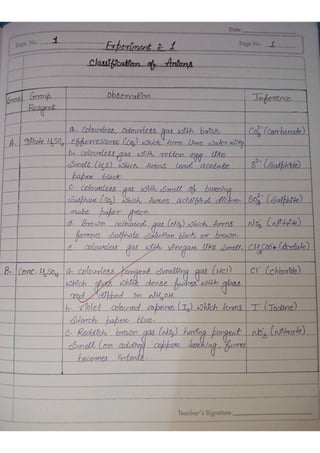 Date
Expt. No. 1
Page No. 1
Experiment : 1
Classification of Anions
Group Group Reagent Observation Inference
a. colourless, odourless gas with brisk CO₃²⁻ (Carbonate)
A. Dilute H₂SO₄ effervescence (CO₂) which turn lime water milky
b. colourless gas with rotten egg like
smell (H₂S) which turns lead acetate S²⁻ (Sulphide)
paper black.
c. colourless gas with smell of burning
Sulphur (SO₂) which turns acidified dichro- SO₃²⁻ (Sulphite)
mate paper green.
d. Brown coloured gas (NO₂) which turns NO₂⁻ (Nitrite)
ferrous Sulphate solution black or brown.
e. colourless gas with vinegar like smell. CH₃COO⁻ (Acetate)
B. Conc. H₂SO₄ a. colourless pungent smelling gas (HCl) Cl⁻ (Chloride)
which gives white dense fumes with glass
rod dipped in NH₄OH.
b. Violet coloured vapours (I₂) which turns I⁻ (Iodine)
Starch paper blue.
c. Reddish brown gas (NO₂) having pungent NO₃⁻ (Nitrate)
smell (on adding copper turning, fumes
becomes intense.
Teacher's Signature